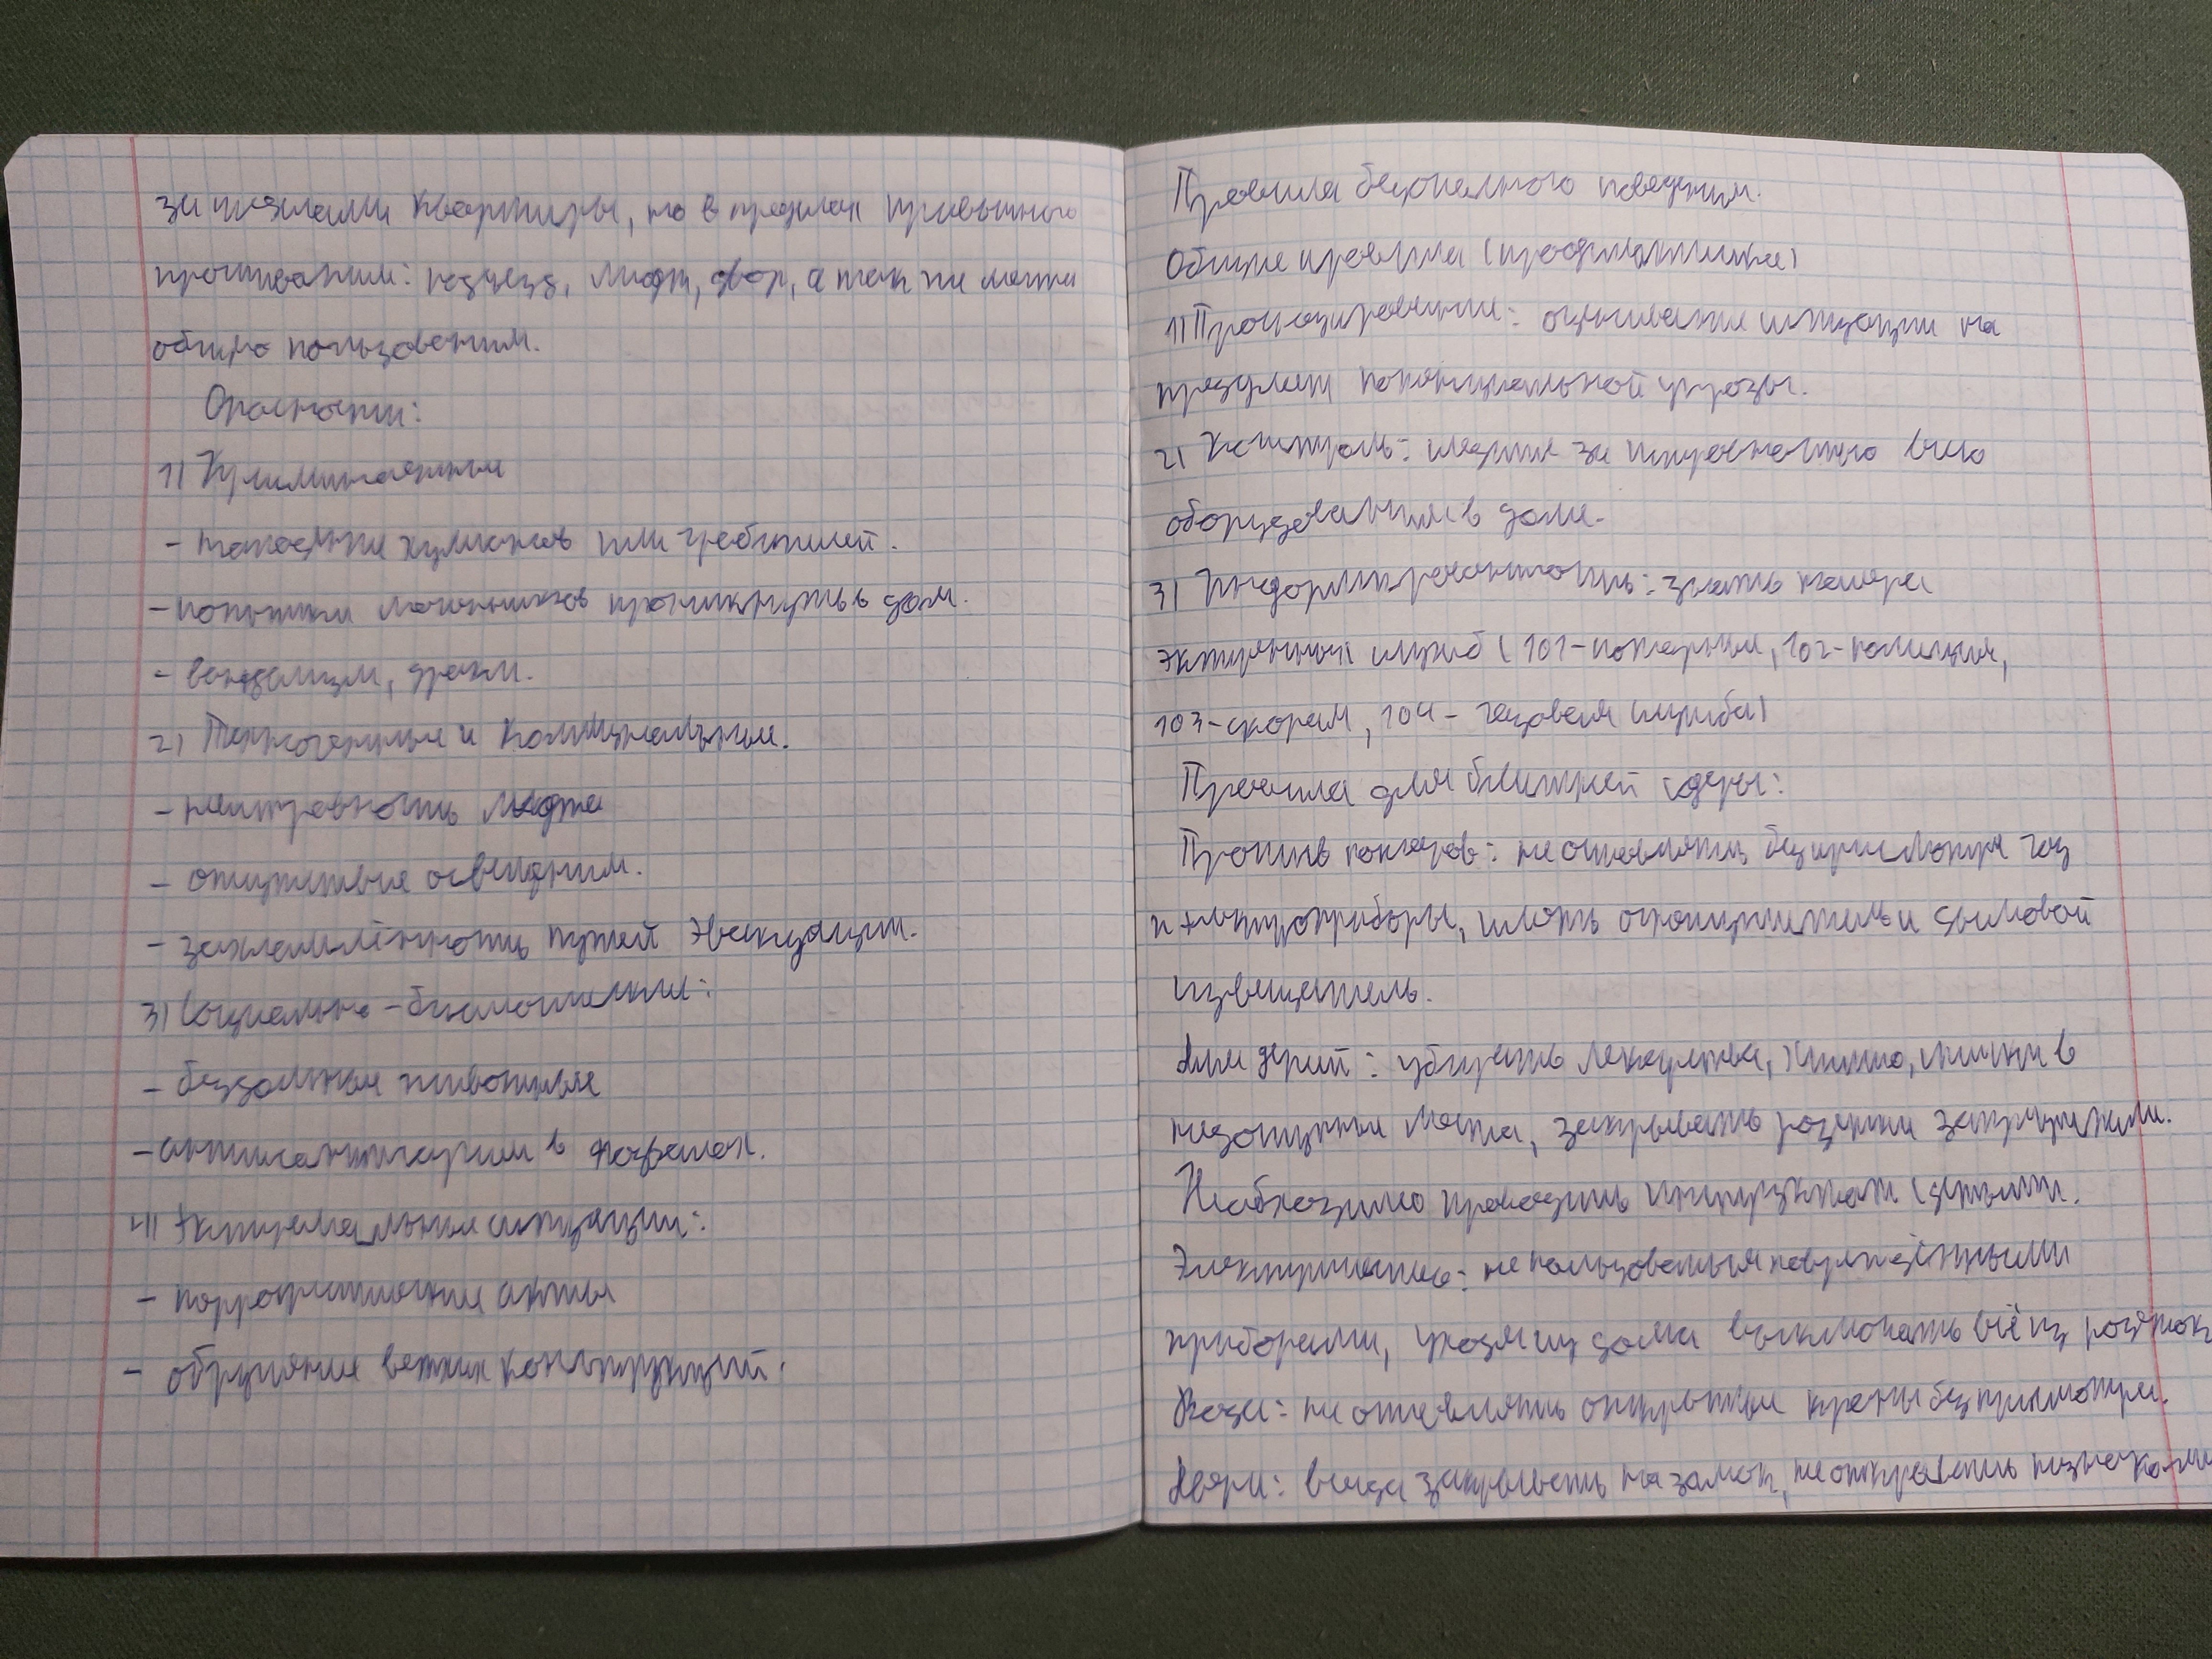 за пределами квартиры, но в пределах привычного
проживания: подъезд, лифт, двор, а так же места
общего пользования.
Опасности:
1) Криминальные
- нападение хулиганов или грабителей.
- попытки мошенников проникнуть в дом.
- вандализм, драки.
2) Техногенные и коммунальные.
- неисправность лифта
- отсутствие освещения.
- захламлённость путей эвакуации.
3) Социально-биологические:
- бездомные животные
- антисанитария в подвалах.
4) Экстремальные ситуации:
- террористические акты
- обрушение ветхих конструкций.
Правила безопасного поведения.
Общие правила (профилактика)
1) Прогнозирование: оценивание ситуации на
предмет потенциальной угрозы.
2) Контроль: следить за исправностью всего
оборудования в доме.
3) Информированность: знать номера
экстренных служб (101-пожарные, 102-полиция,
103-скорая, 104- газовая служба)
Правила для ближней среды:
Против пожаров: не оставлять без присмотра газ
и электроприборы, иметь огнетушитель и дымовой
извещатель.
Для детей: убирать лекарства, химию, спички в
недоступные места, закрывать розетки заглушками.
Необходимо проводить инструктаж с детьми.
Электричество: не пользоваться повреждёнными
приборами, уходя из дома выключать всё из розеток
Вода: не оставлять открытые краны без присмотра.
Двери: всегда закрывать на замок, не открывать